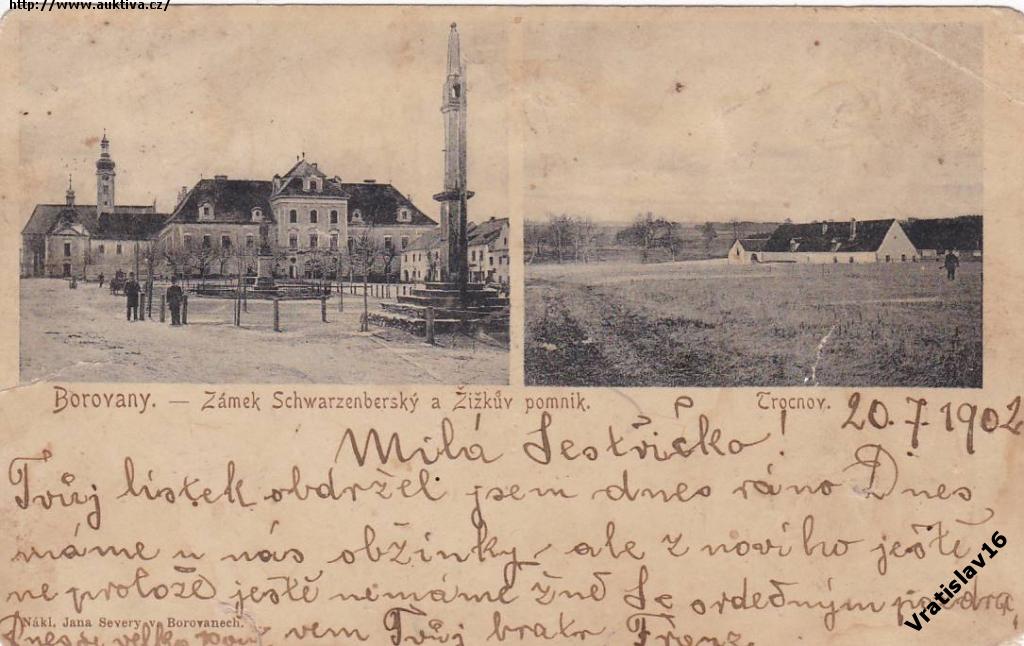 http://www.auktiva.cz/
Borovany. — Zámek Schwarzenberský a Žižkův pomnik.
Trocnov.
20.7.1902
Milá Sestřičko!
Tvůj lístek obdržel jsem dnes ráno Dnes
máme u nás obžinky, ale z noviho ještě
ne protože ještě nemáme žně Se srdečným
Nákl. Jana Severy v Borovanech.
Tvůj bratr Franz.
Vratislav16